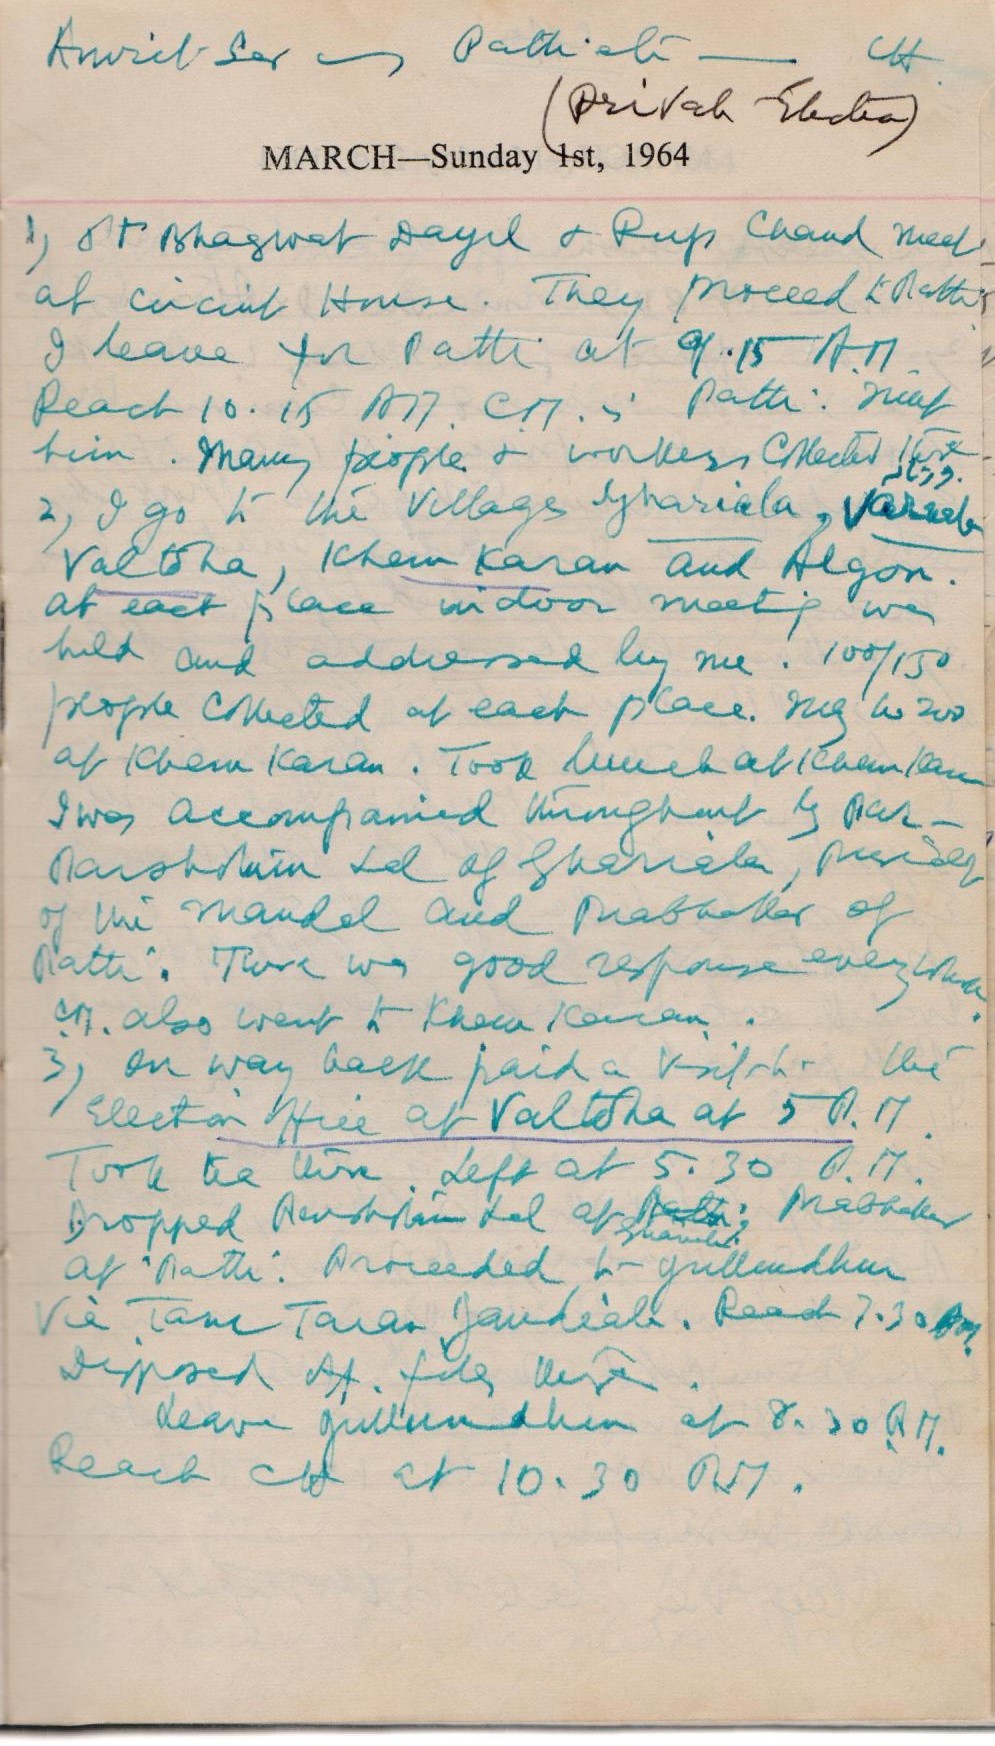 Amritsar — Patti etc — CH
(Private Election)
MARCH—Sunday 1st, 1964
1, Bhagwat Dayal & Rup Chand meet
at circuit House. They proceed to Patti
I leave for Patti at 9.15 A.M.
Reach 10.15 AM. C.M. is Patti. meet
him. Many people & workers collected there
2, I go to the Villages Ghariala,
Valtoha, Khem Karan and Algon.
at each place indoor meeting was
held and addressed by me. 100/150
people collected at each place. 200
at Khem Karan. Took lunch at Khem Karan
I was accompanied throughout by
Parshotam Lal of Ghariala, President
of the Mandal and Prabhakar of
Patti. There was good response everywhere.
C.M. also went to Khem Karan.
3, On way back paid a visit to the
Election Office at Valtoha at 5 P.M.
Took tea there. Left at 5.30 P.M.
Dropped Parshotam Lal at Ghariala Prabhakar
at Patti. Proceeded to Jullundhur
Via Tarn Taran Jandiala. Reach 7.30 PM.
Disposed of files there.
Leave Jullundhur at 8.30 P.M.
Reach CH at 10.30 P.M.